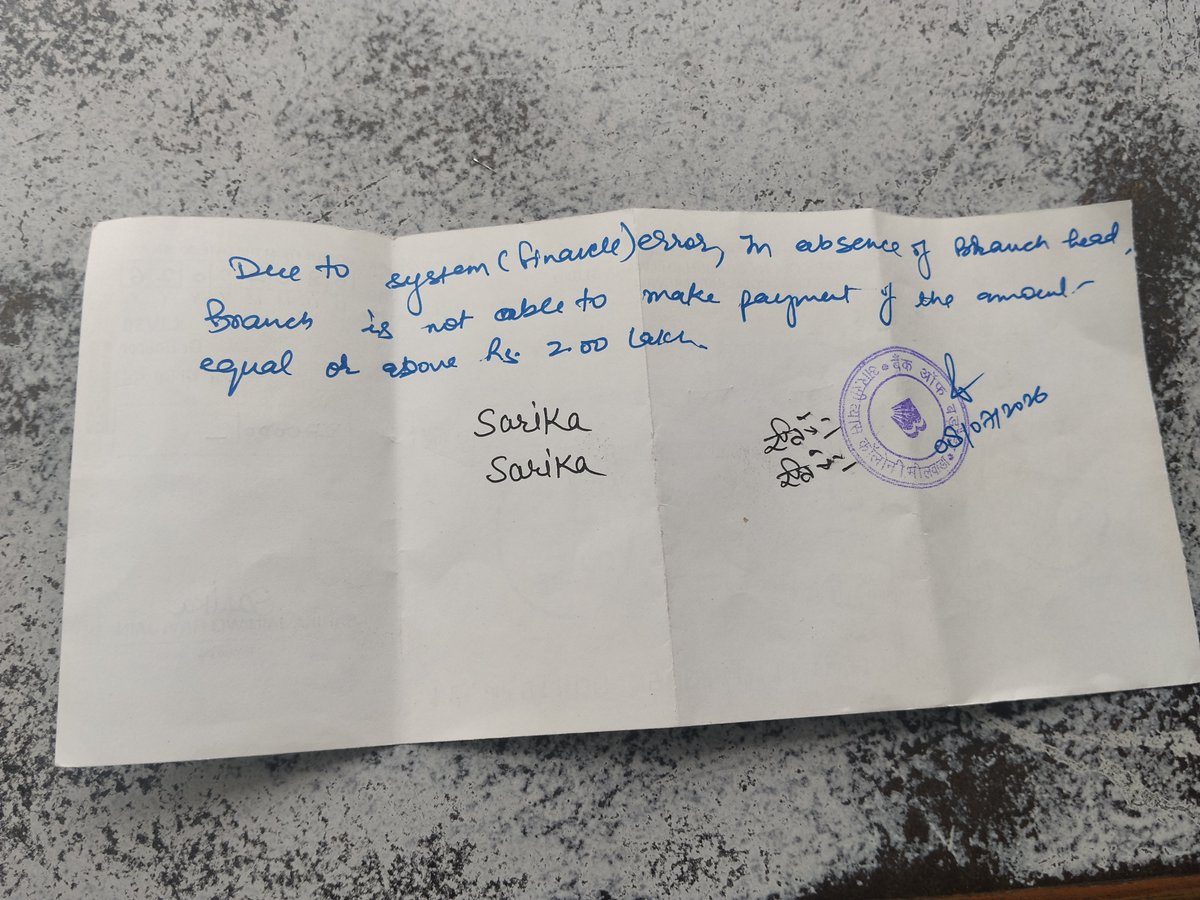 Due to system (finacle) error, In absence of Branch head,
Branch is not able to make payment of the amount
equal or above Rs. 2.00 Lakh.
Sarika
Sarika
बैंक ऑफ
आरसी व्यास कॉलोनी भीलवाड़ा
08/07/2026